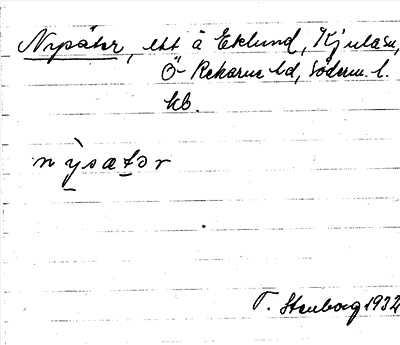 Nysäter, ett å Eklund, Kjulasn,
Ö- Rekarne hd, Söderm. l.
kb.
nỳsætər
T. Stenborg 1932